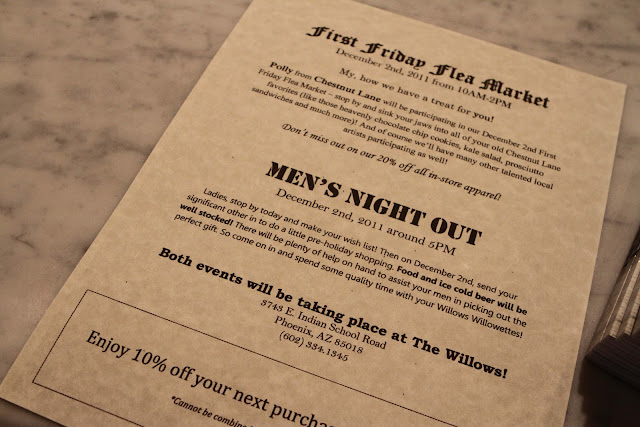 First Friday Flea Market
December 2nd, 2011 from 10AM-2PM
My, how we have a treat for you!
Polly from Chestnut Lane will be participating in our December 2nd First
Friday Flea Market – stop by and sink your jaws into all of your old Chestnut Lane
favorites (like those heavenly chocolate chip cookies, kale salad, prosciutto
sandwiches and much more)! And of course we'll have many other talented local
artists participating as well!
Don't miss out on our 20% off all in-store apparel!
MEN'S NIGHT OUT
December 2nd, 2011 around 5PM
Ladies, stop by today and make your wish list! Then on December 2nd, send your
significant other in to do a little pre-holiday shopping. Food and ice cold beer will be
well stocked! There will be plenty of help on hand to assist your men in picking out the
perfect gift. So come on in and spend some quality time with your Willows Willowettes!
Both events will be taking place at The Willows!
3743 E. Indian School Road
Phoenix, AZ 85018
(602) 334.1345
Enjoy 10% off your next purchas
*Cannot be combin